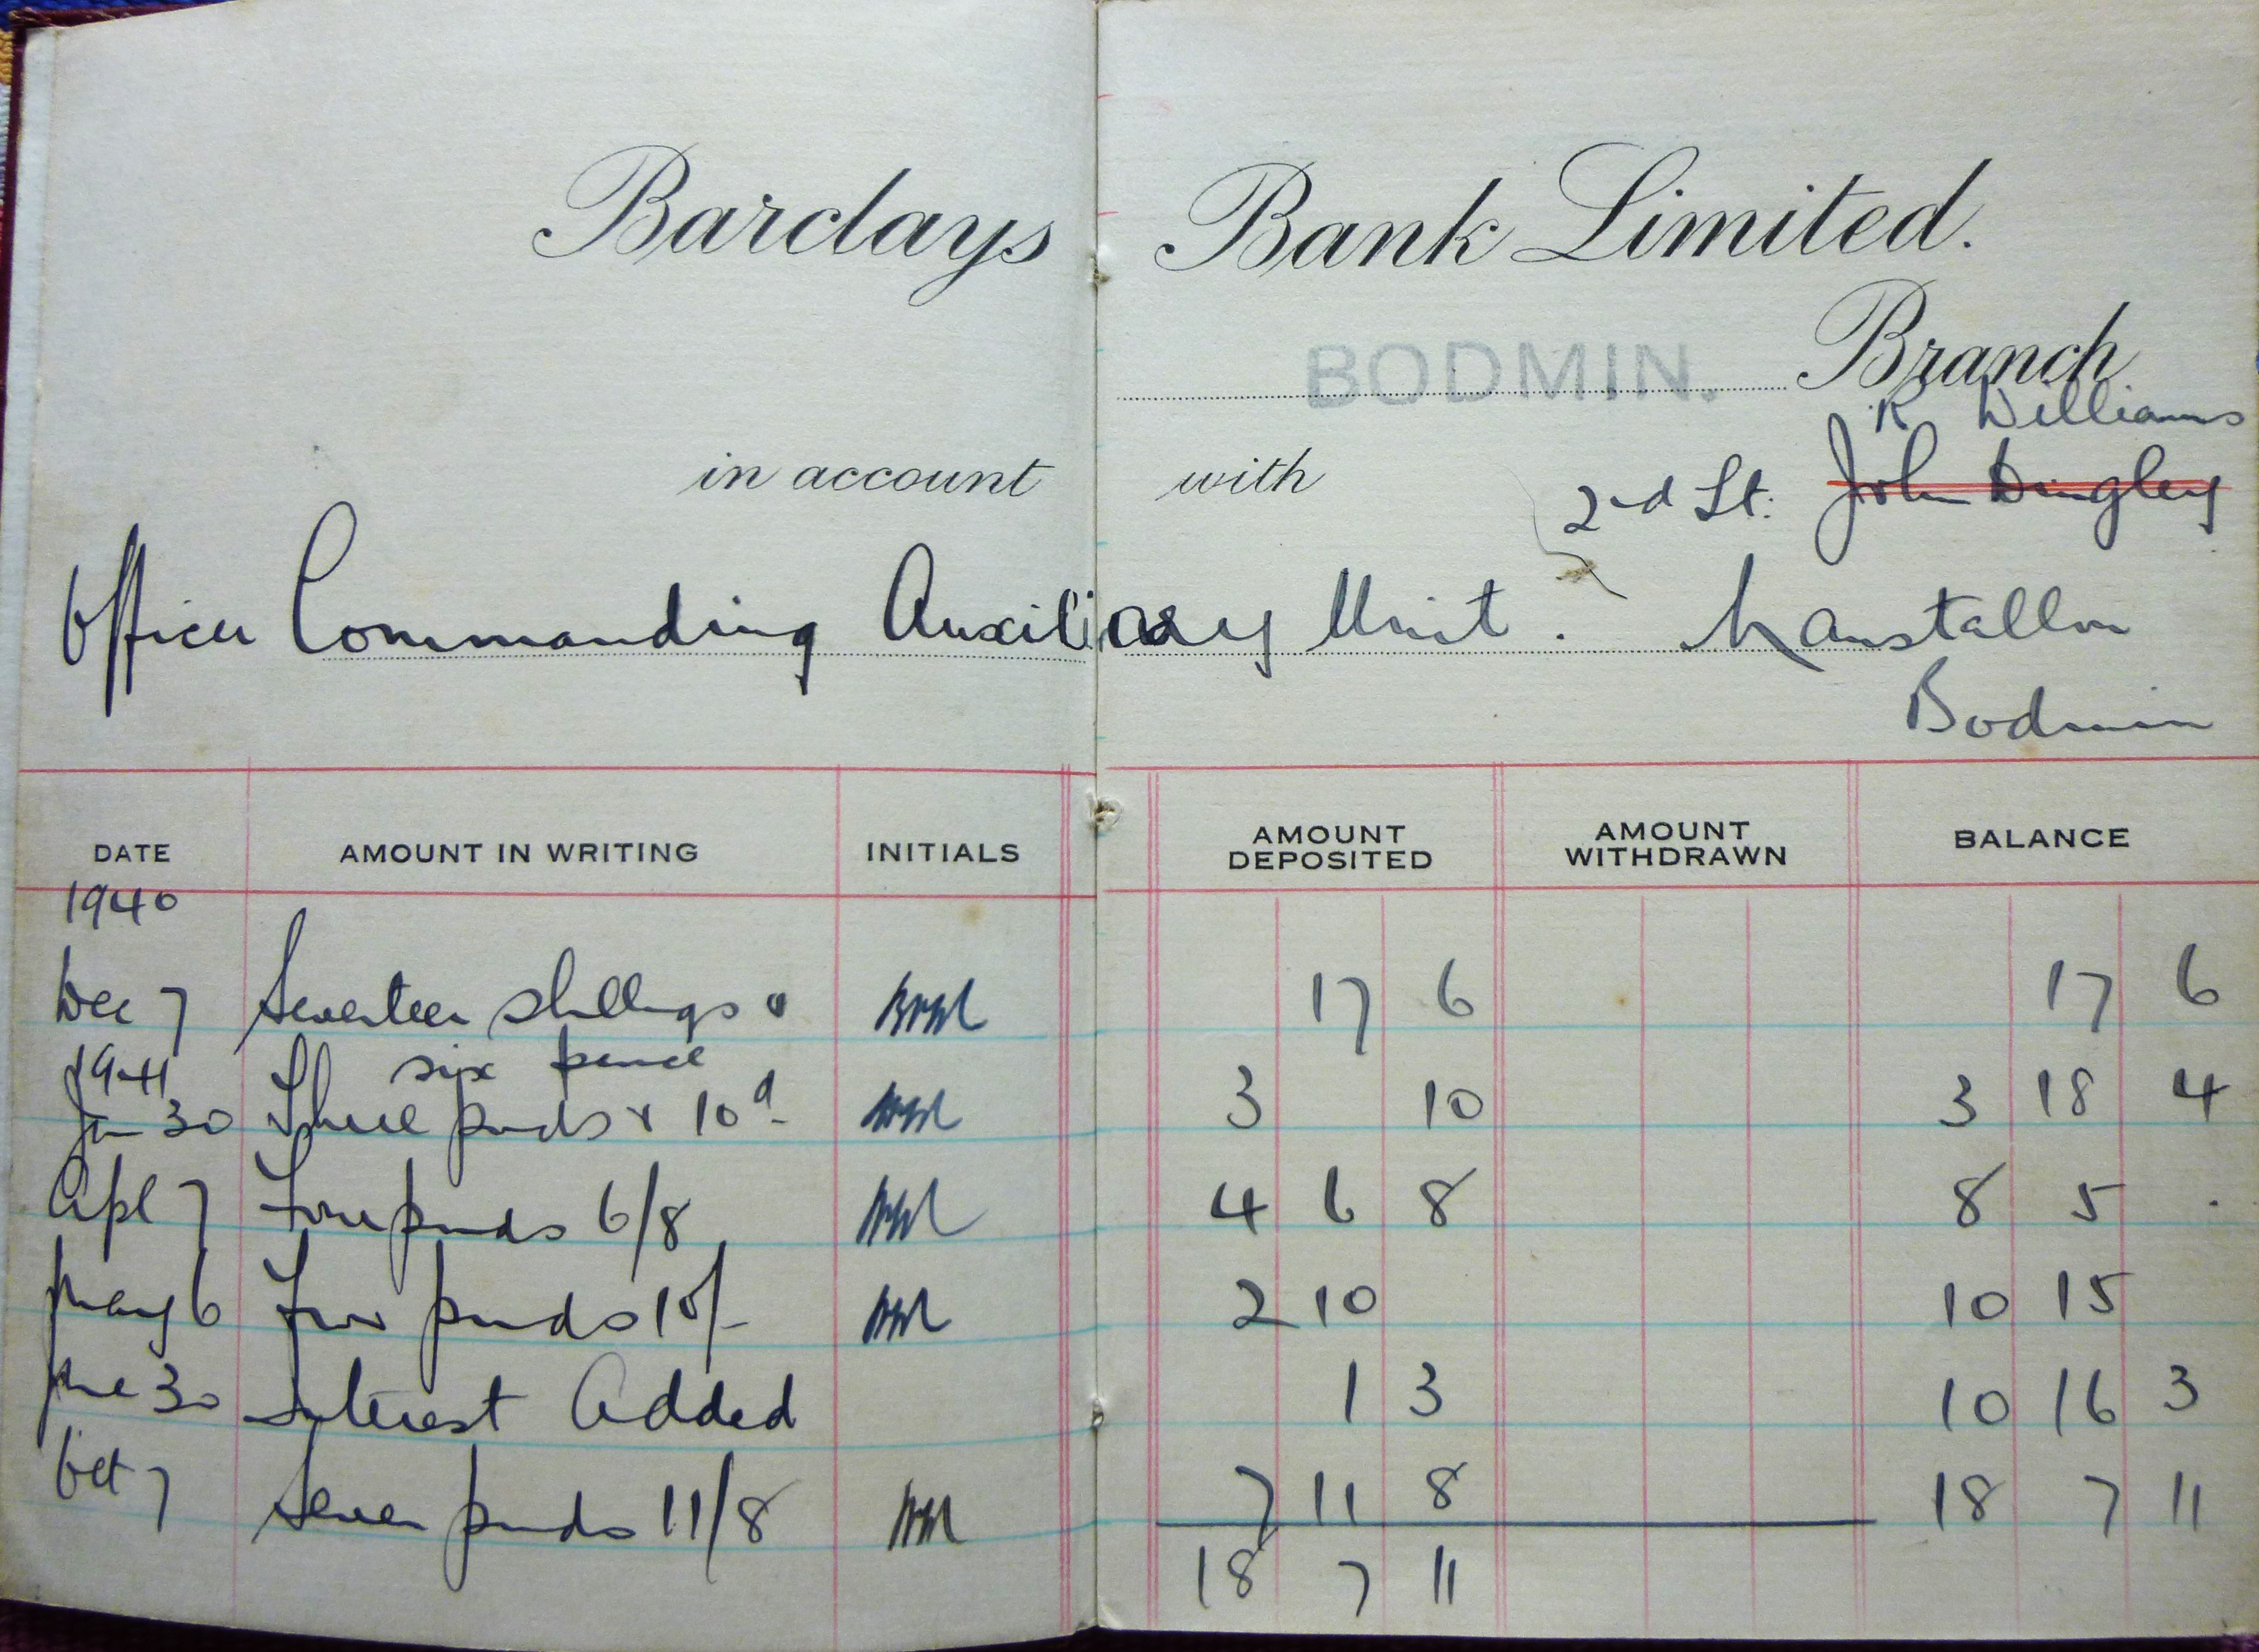 Barclays Bank Limited.
BODMIN. Branch
R Williams
in account with 2nd Lt. John Dingley
Officer Commanding Auxiliary Unit. Nanstallon
Bodmin
DATE AMOUNT IN WRITING INITIALS AMOUNT DEPOSITED AMOUNT WITHDRAWN BALANCE
1940
Dec 7 Seventeen shillings & 17 6 17 6
six pence
1941
Jan 30 Three pounds & 10d 3 10 3 18 4
Apl 7 Four pounds 6/8 4 6 8 8 5 .
May 6 Two pounds 10/- 2 10 10 15
June 30 Interest Added 1 3 10 16 3
Oct 7 Seven pounds 11/8 7 11 8 18 7 11
18 7 11